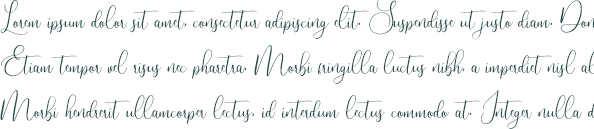 Lorem ipsum dolor sit amet, consectetur adipiscing elit. Suspendisse ut justo diam. Don
Etiam tempor vel risus nec pharetra. Morbi fringilla luctus nibh, a imperdiet nisl al
Morbi hendrerit ullamcorper lectus, id interdum lectus commodo at. Integer nulla d